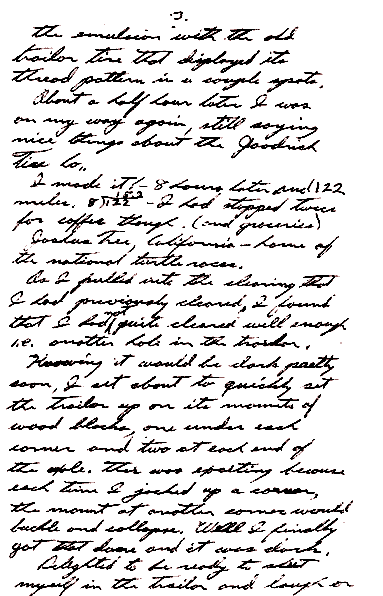 3.
the emulsion with the old
trailor tire that displayed its
thread pattern in a couple spots.
About a half hour later I was
on my way again, still saying
nice things about the Goodrich
Tire Co..
I made it! - 8 hours later and 122
miles. - I had stopped twice
for coffee though. (and groceries)
Joshua Tree, California - home of
the national turtle races.
As I pulled into the clearing that
I had previously cleared, I found
that I had not quite cleared well enough
i.e. another hole in the trailor.
Knowing it would be dark pretty
soon, I set about to quickly set
the trailor up on its mounts of
wood blocks, one under each
corner and two at each end of
the axle. This was exciting because
each time I jacked up a corner,
the mount at another corner would
buckle and collapse. Well I finally
got that done and it was dark.
Delighted to be ready to
myself in the trailor and laugh or